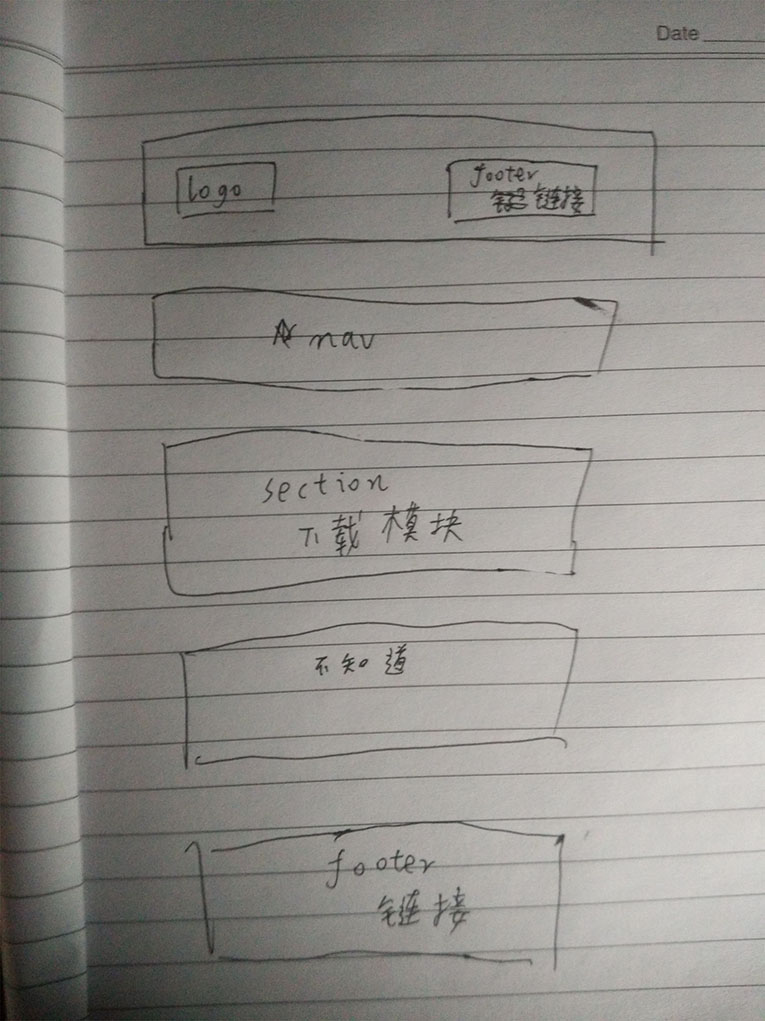 Date
logo
footer
链接
nav
section
下载模块
不知道
footer
链接